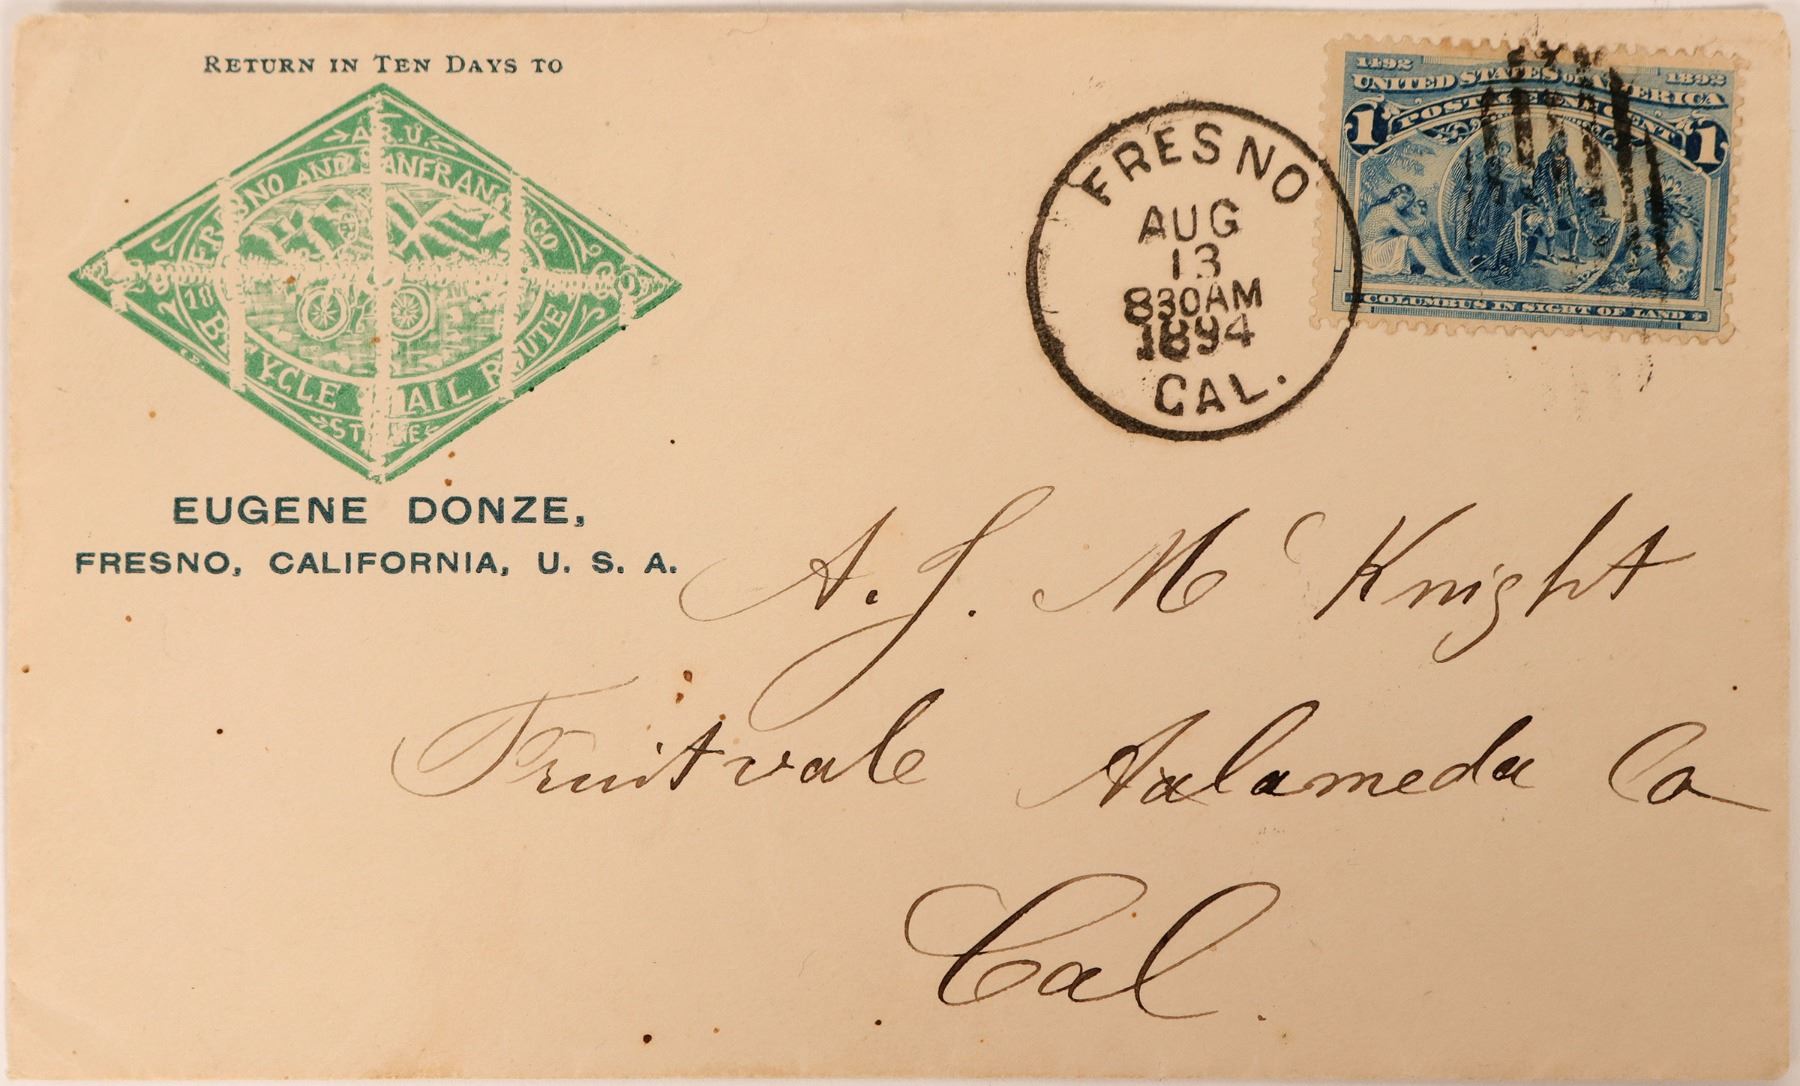 RETURN IN TEN DAYS TO
A.R.U.
FRESNO AND SAN FRANCISCO
18
BICYCLE MAIL ROUTE
STRIKE
EUGENE DONZE,
FRESNO, CALIFORNIA, U. S. A.
FRESNO
AUG
13
830AM
1894
CAL.
1492 1892
UNITED STATES OF AMERICA
POSTAGE ONE CENT
1 1
COLUMBUS IN SIGHT OF LAND
A. J. McKnight
Fruitvale Alameda Co
Cal.